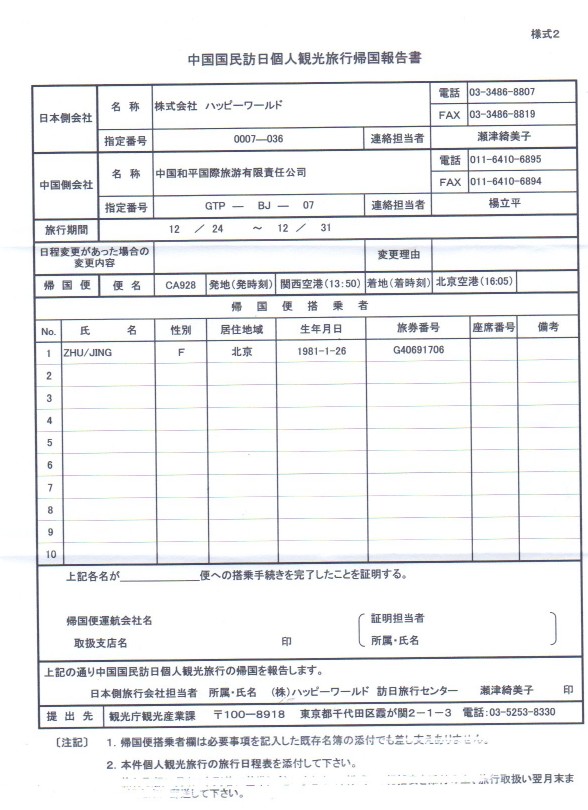 様式2
中国国民訪日個人観光旅行帰国報告書
日本側会社 名 称 株式会社 ハッピーワールド 電話 03-3486-8807
FAX 03-3486-8819
指定番号 0007―036 連絡担当者 瀬津綺美子
中国側会社 名 称 中国和平国際旅游有限責任公司 電話 011-6410-6895
FAX 011-6410-6894
指定番号 GTP ― BJ ― 07 連絡担当者 楊立平
旅行期間 12 ／ 24 ～ 12 ／ 31
日程変更があった場合の変更内容 変更理由
帰 国 便 便 名 CA928 発地(発時刻) 関西空港(13:50) 着地(着時刻) 北京空港(16:05)
帰 国 便 搭 乗 者
No. 氏 名 性別 居住地域 生年月日 旅券番号 座席番号 備考
1 ZHU/JING F 北京 1981-1-26 G40691706
2
3
4
5
6
7
8
9
10
上記各名が＿＿＿＿＿＿便への搭乗手続きを完了したことを証明する。
帰国便運航会社名 証明担当者
取扱支店名 印 所属・氏名
上記の通り中国国民訪日個人観光旅行の帰国を報告します。
日本側旅行会社担当者 所属・氏名 (株)ハッピーワールド 訪日旅行センター 瀬津綺美子 印
提 出 先 観光庁観光産業課 〒100－8918 東京都千代田区霞が関2－1－3 電話:03-5253-8330
〔注記〕 1. 帰国便搭乗者欄は必要事項を記入した既存名簿の添付でも差し支えありません。
2. 本件個人観光旅行の旅行日程表を添付して下さい。
旅行取扱い翌月末ま
して下さい。